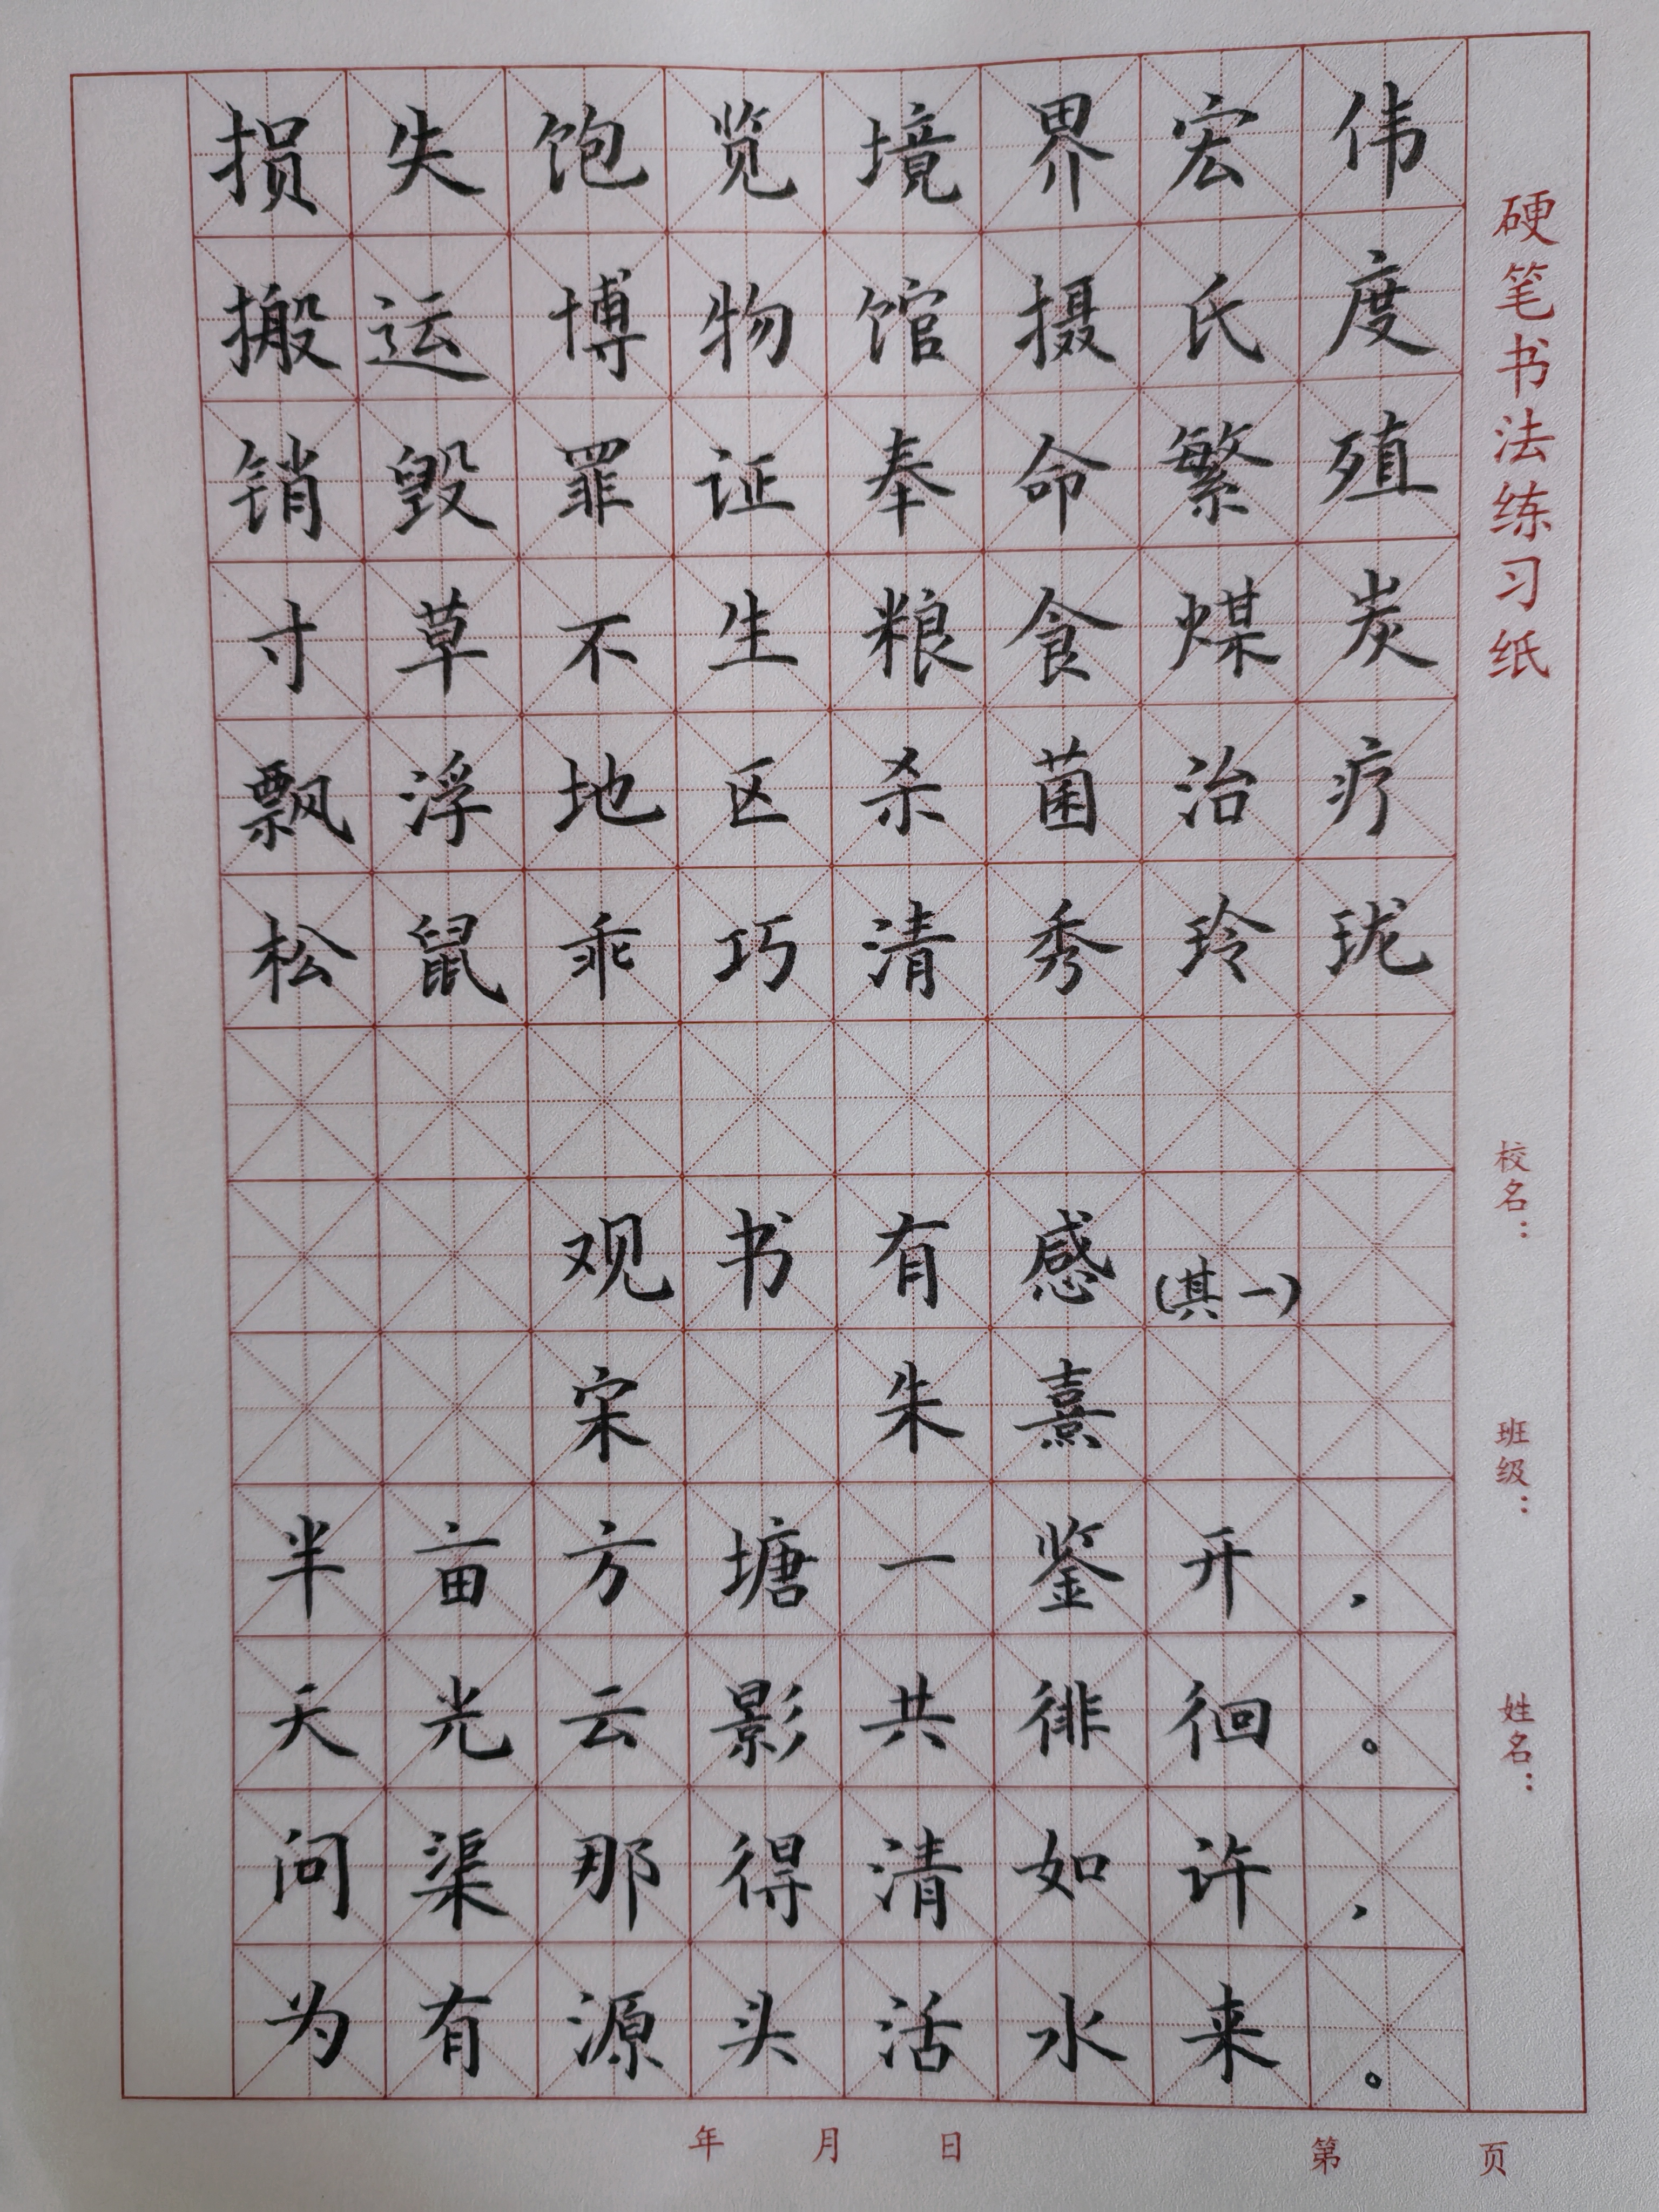 损失饱览境界宏伟
搬运博物馆摄氏度
销毁罪证奉命繁殖
寸草不生粮食煤炭
飘浮地区杀菌治疗
松鼠乖巧清秀玲珑
观书有感(其一)
宋 朱熹
半亩方塘一鉴开,
天光云影共徘徊。
问渠那得清如许,
为有源头活水来。
硬笔书法练习纸
校名:
班级:
姓名:
年 月 日
第 页